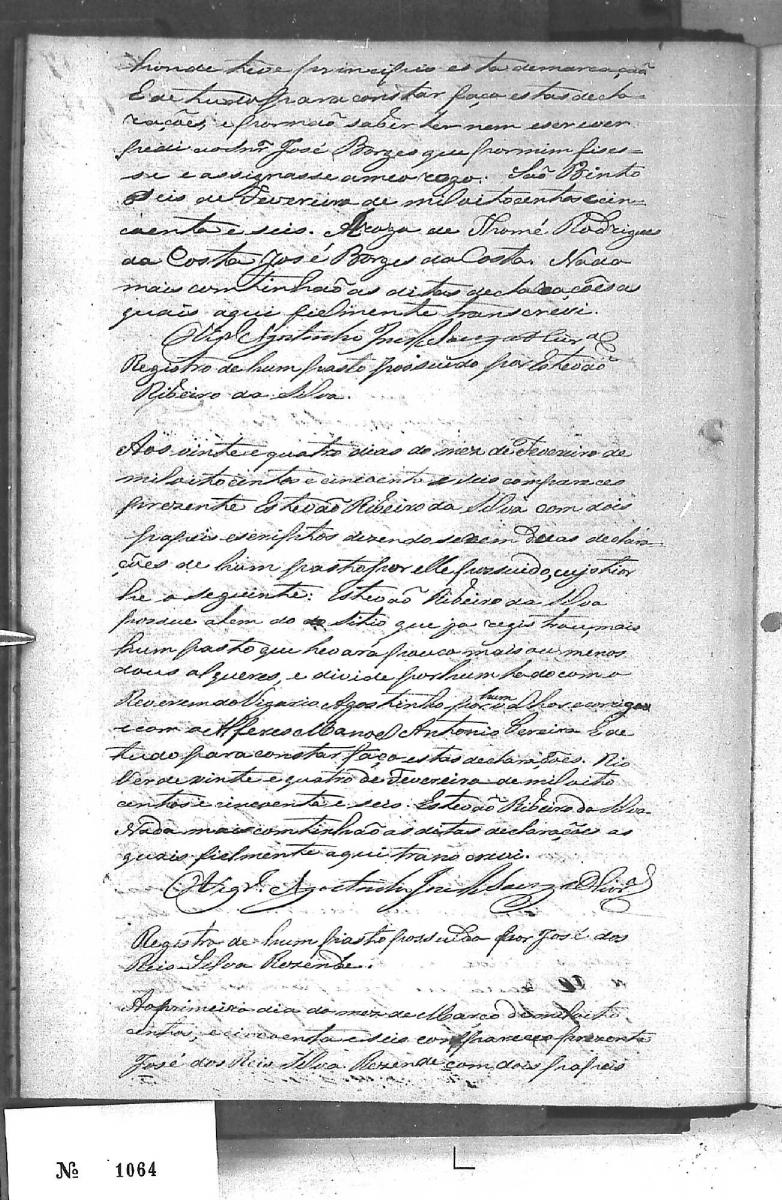 honde teve principio esta demarcação
E de tudo para constar faço estas decla-
rações, e por não saber ler nem escrever
pedi ao Snr José Borges que por mim fises-
se e assignasse a meo rogo. São Binto
Seis de Fevereiro de mil oito centos e cin-
coenta e seis. A roga de Thomé Rodrigues
da Costa José Borges da Costa. Nada
mais continhão as ditas declarações as
quais aqui fielmente transcrevi.
O Vigr.º Agostinho José
Registro de hum pasto possuido por Estevão
Ribeiro da Silva.
Aos vinte e quatro dias do mez de Fevereiro de
mil oito centos e cincoenta e seis compareceo
prezente Estevão Ribeiro da Silva com dois
papeis escriptos dizendo serem duas declara-
ções de hum pasto por elle possuido, cujo thior
he o seguinte: Estevão Ribeiro da Silva
possue alem do sitio que ja registrau, mais
hum pasto que levará pouco mais ou menos
dous alqueres, e divide por hum lado com o
Reverendo Vigario Agostinho por hum vallo
e com o Alferes Manoel Antonio Pereira E de
tudo para constar faço estas declarações. Rio
Verde vinte e quatro de Fevereiro de mil oito
centos e cincoenta e seis. Estevão Ribeiro da Silva.
Nada mais continhão as ditas declarações as
quais fielmente aqui transcrevi.
O Vigr.º Agostinho José
Registro de hum pasto possuido por José dos
Reis Silva Rezende.
Ao primeiro dia do mez de Março de mil oito
centos, e cincoenta e seis compareceo prezente
José dos Reis Silva Rezende com dois papeis
№ 1064